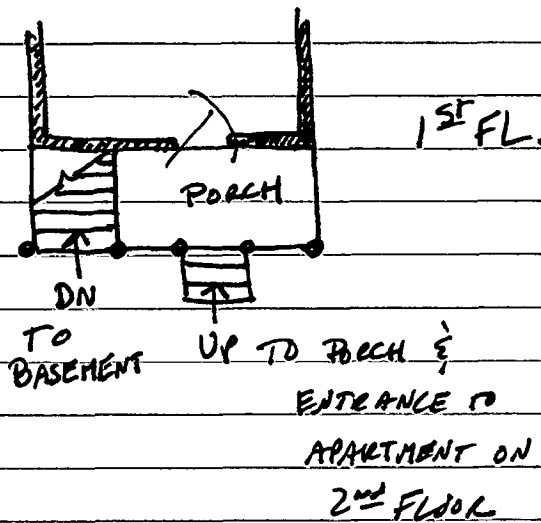 1ST FL.
PORCH
DN
TO
BASEMENT
UP TO PORCH &
ENTRANCE TO
APARTMENT ON
2nd FLOOR